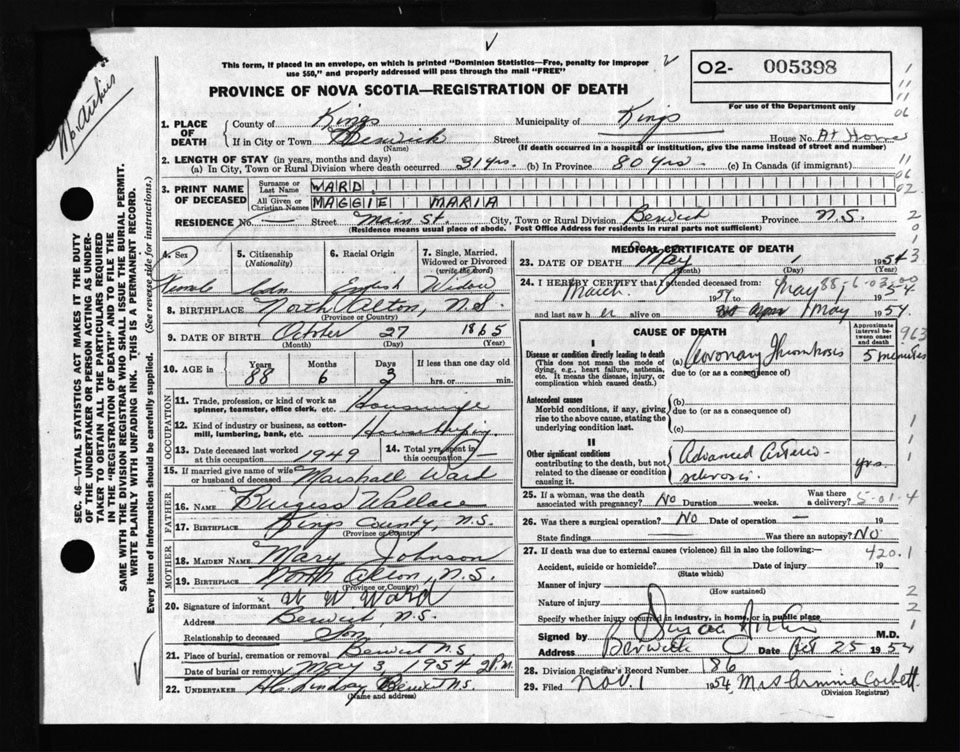 McArchie
This form, if placed in an envelope, on which is printed "Dominion Statistics—Free, penalty for improper
use $50," and properly addressed will pass through the mail "FREE"
02- 005398
For use of the Department only
PROVINCE OF NOVA SCOTIA—REGISTRATION OF DEATH
1. PLACE OF DEATH
County of Kings Municipality of Kings
If in City or Town Berwick Street House No. At Home
(Name) (If death occurred in a hospital or institution, give the name instead of street and number)
2. LENGTH OF STAY (in years, months and days)
(a) In City, Town or Rural Division where death occurred 31 yrs. (b) In Province 80 yrs. (c) In Canada (if immigrant)
3. PRINT NAME OF DECEASED
Surname or Last Name WARD
All Given or Christian Names MAGGIE MARIA
RESIDENCE No. — Street Main St. City, Town or Rural Division Berwick Province N.S.
(Residence means usual place of abode. Post Office Address for residents in rural parts not sufficient)
4. Sex Female
5. Citizenship (Nationality) Cdn.
6. Racial Origin English
7. Single, Married, Widowed or Divorced (write the word) Widow
8. BIRTHPLACE North Alton, N.S.
(Province or Country)
9. DATE OF BIRTH October 27 1865
(Month) (Day) (Year)
10. AGE in Years 88 Months 6 Days 3 If less than one day old hrs. or min.
OCCUPATION
11. Trade, profession, or kind of work as spinner, teamster, office clerk, etc. Housewife
12. Kind of industry or business, as cotton-mill, lumbering, bank, etc.
13. Date deceased last worked at this occupation 1949
14. Total yrs. spent in this occupation
15. If married give name of wife or husband of deceased Marshall Ward
FATHER
16. NAME Burgess Wallace
17. BIRTHPLACE Kings County, N.S.
(Province or Country)
MOTHER
18. MAIDEN NAME Mary Johnson
19. BIRTHPLACE North Alton, N.S.
(Province or Country)
20. Signature of informant x W W Ward
Address Berwick, N.S.
Relationship to deceased Son
21. Place of burial, cremation or removal Berwick N.S.
Date of burial or removal May 3, 1954 2 P.M.
22. UNDERTAKER H. Lindsay Berwick N.S.
(Name and address)
MEDICAL CERTIFICATE OF DEATH
23. DATE OF DEATH May 1 1954
(Month) (Day) (Year)
24. I HEREBY CERTIFY that I attended deceased from:
March 1954 to May 1954
and last saw her alive on 1 May 1954
CAUSE OF DEATH
Approximate interval between onset and death
I
Disease or condition directly leading to death
(This does not mean the mode of dying, e.g., heart failure, asthenia, etc. It means the disease, injury, or complication which caused death.)
(a) Coronary Thrombosis 5 minutes
due to (or as a consequence of)
Antecedent causes
Morbid conditions, if any, giving rise to the above cause, stating the underlying condition last.
(b)
due to (or as a consequence of)
(c)
II
Other significant conditions
contributing to the death, but not related to the disease or condition causing it.
Advanced Arterio-
sclerosis. yrs.
25. If a woman, was the death associated with pregnancy? No Duration weeks. Was there a delivery?
5-01-4
26. Was there a surgical operation? No Date of operation — 19
State findings — Was there an autopsy? NO
27. If death was due to external causes (violence) fill in also the following:— 420.1
Accident, suicide or homicide? Date of injury 19
(State which)
Manner of injury
(How sustained)
Nature of injury
Specify whether injury occurred in industry, in home, or in public place
Signed by M.D.
Address Berwick Date Oct 25 1954
28. Division Registrar's Record Number 186
29. Filed Nov. 1 1954 Mrs Arminna Corbett
(Division Registrar)
SEC. 46—VITAL STATISTICS ACT MAKES IT THE DUTY
OF THE UNDERTAKER OR PERSON ACTING AS UNDER-
TAKER TO OBTAIN ALL THE PARTICULARS REQUIRED
IN THE "REGISTRATION OF DEATH" AND TO FILE THE
SAME WITH THE DIVISION REGISTRAR WHO SHALL ISSUE THE BURIAL PERMIT.
WRITE PLAINLY WITH UNFADING INK. THIS IS A PERMANENT RECORD.
Every item of information should be carefully supplied. (See reverse side for instructions.)